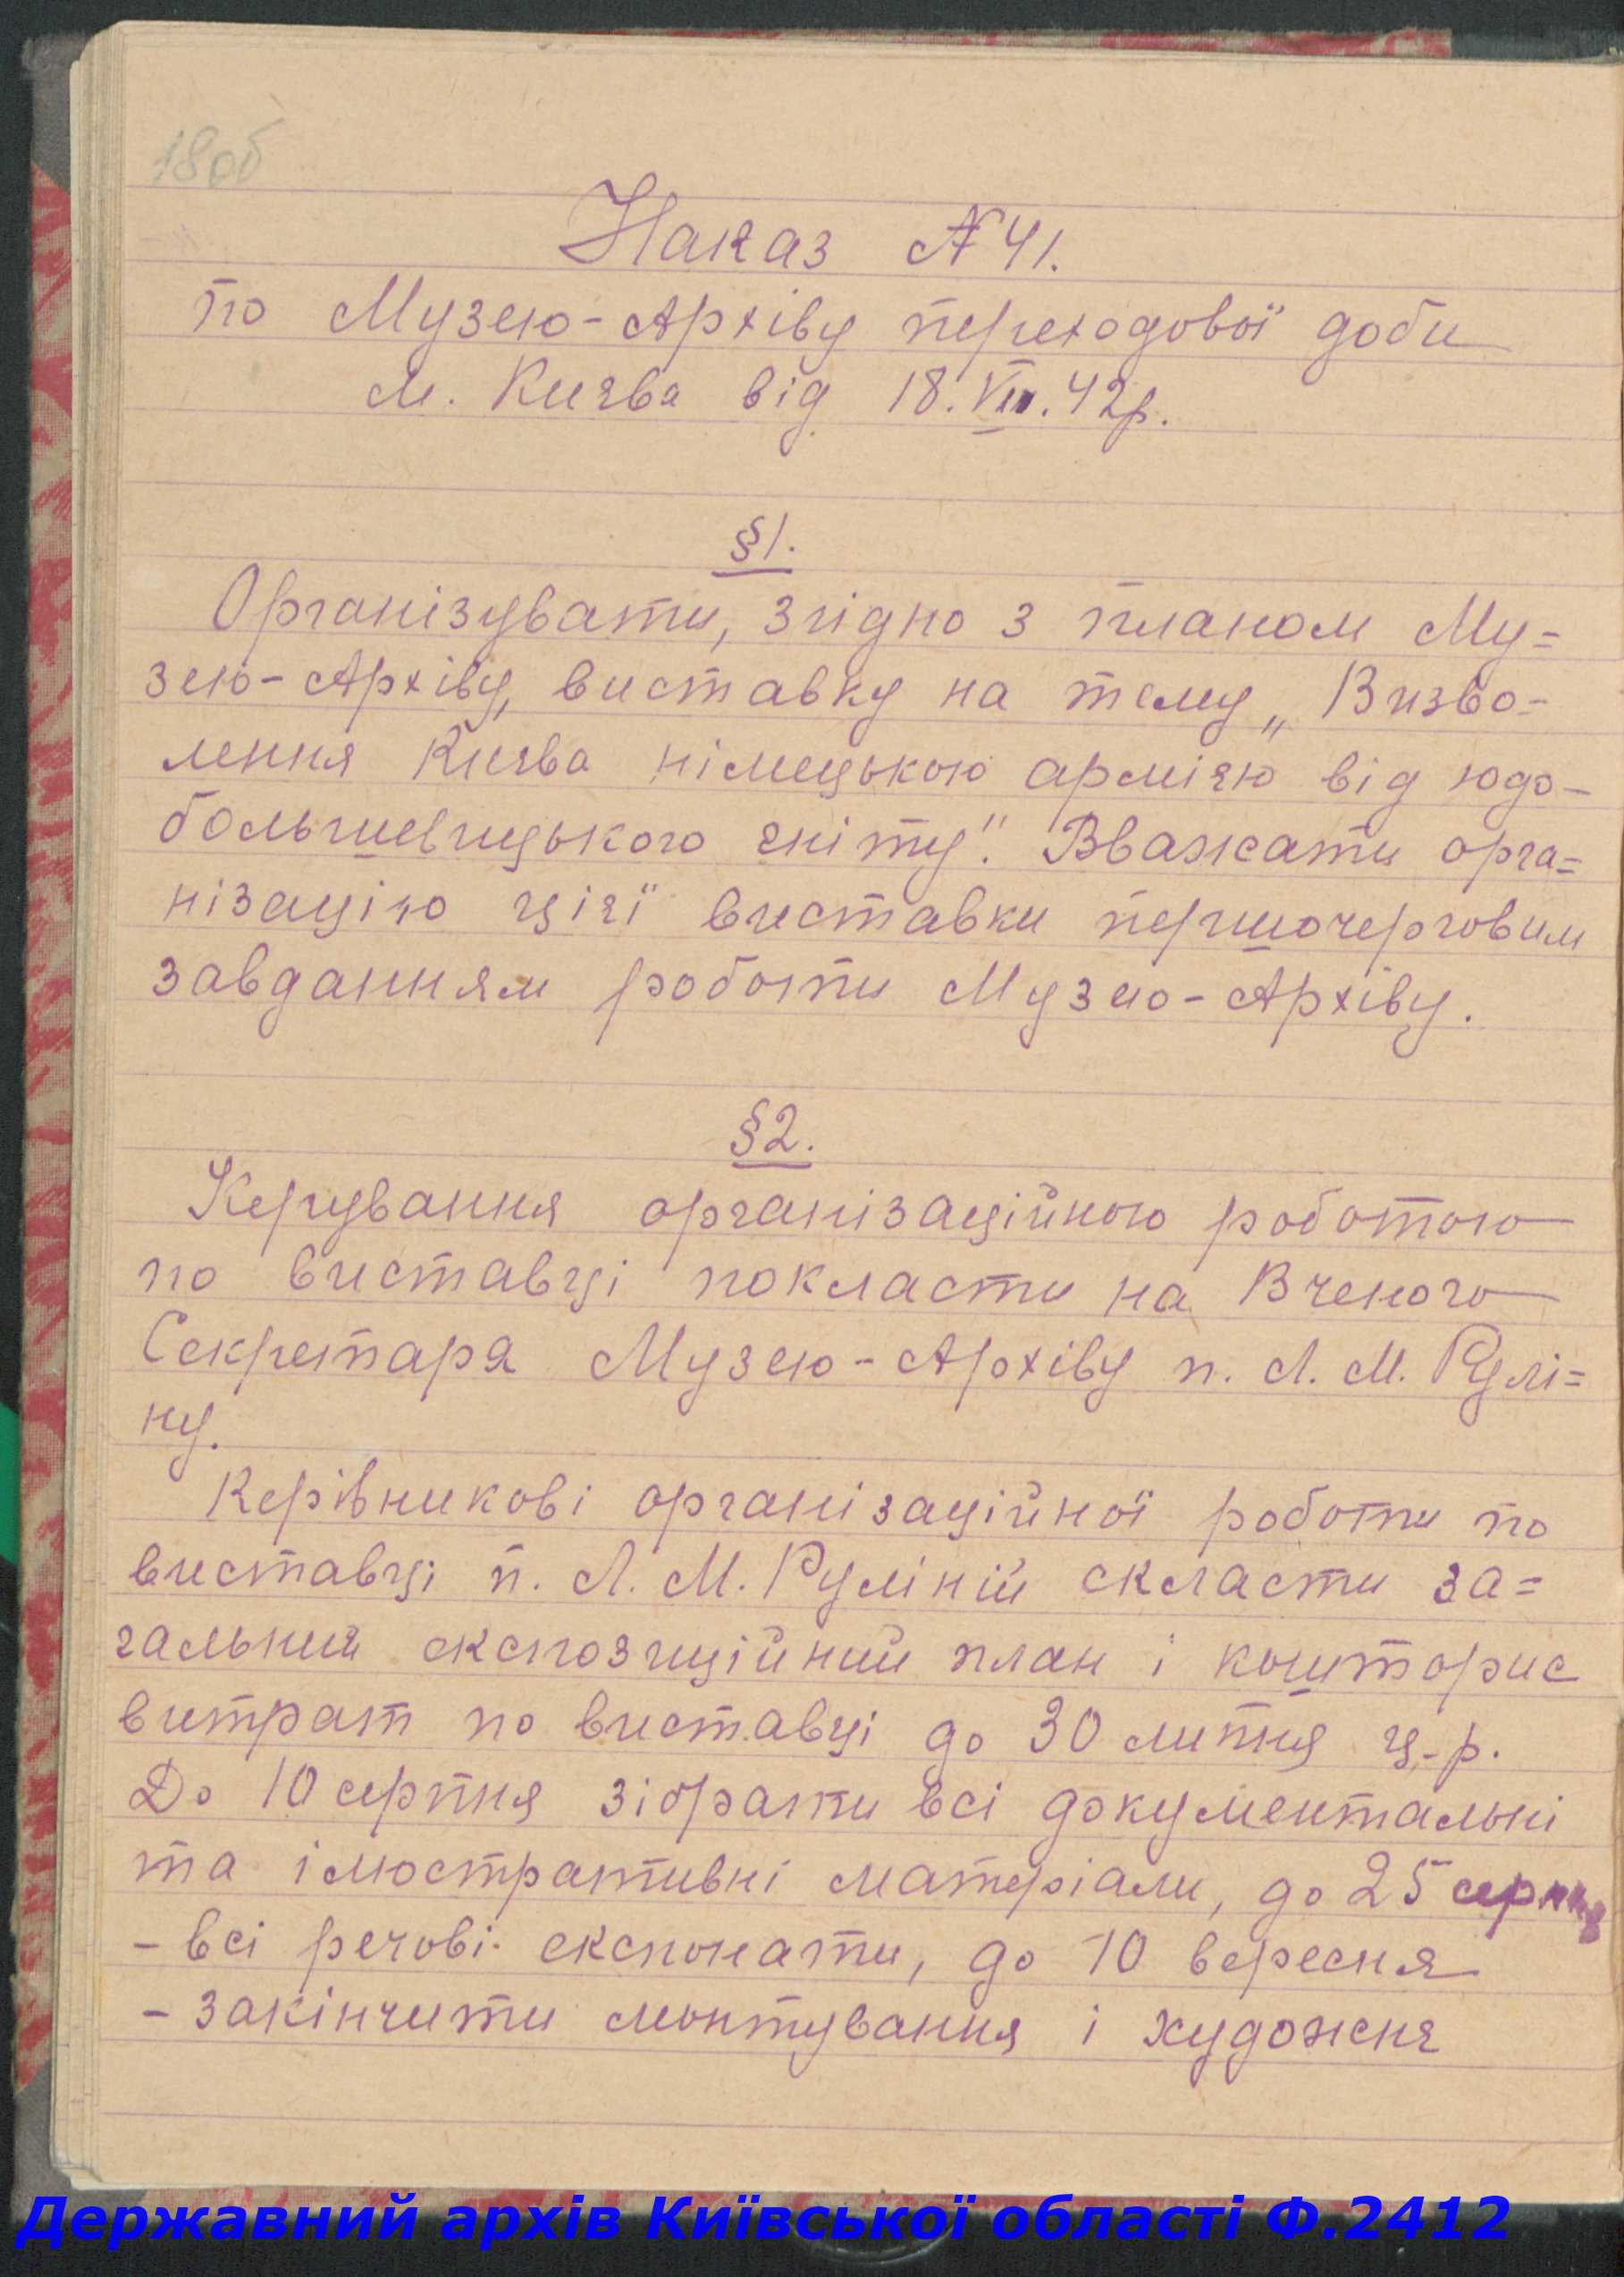 18об
Наказ №41.
по Музею-Архіву переходової доби
м. Києва від 18.VII.42р.
§1.
Організувати, згідно з планом Му=
зею-Архіву, виставку на тему „Визво-
лення Києва німецькою армією від юдо-
большевицького гніту". Вважати орга=
нізацію цієї виставки першочерговим
завданням роботи Музею-Архіву.
§2.
Керування організаційною роботою
по виставці покласти на Вченого
Секретаря Музею-Архіву п. Л. М. Рулі=
ну.
Керівникові організаційної роботи по
виставці п. Л. М. Руліній скласти за=
гальний експозиційний план і кошторис
витрат по виставці до 30 липня ц.р.
До 10 серпня зібрати всі документальні
та ілюстративні матеріали, до 25 серпня
- всі речові експонати, до 10 вересня
- закінчити монтування і художнє
Державний архів Київської області Ф.2412